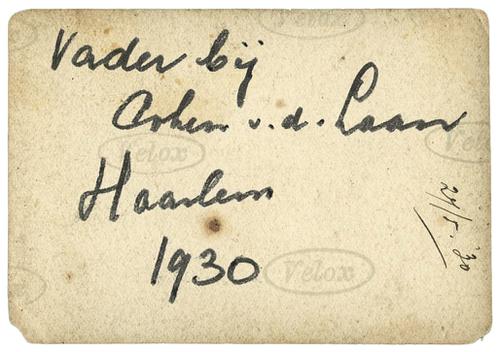 Vader bij
v.d. Laan
Haarlem
1930
27/5.'30
Velox
Velox
Velox